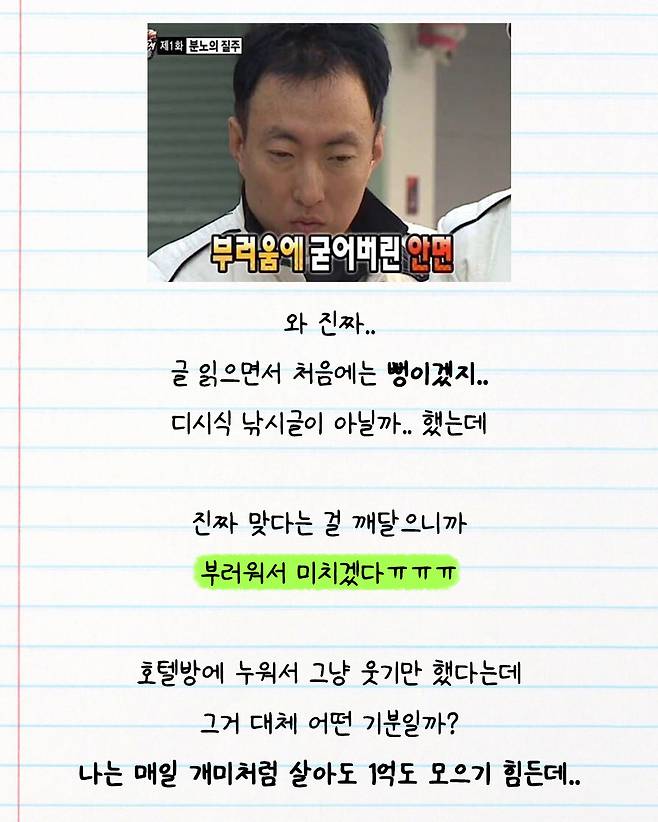 제1화 분노의 질주
부러움에 굳어버린 안면
와 진짜..
글 읽으면서 처음에는 뻥이겠지..
디시식 낚시글이 아닐까.. 했는데
진짜 맞다는 걸 깨달으니까
부러워서 미치겠다ㅠㅠㅠ
호텔방에 누워서 그냥 웃기만 했다는데
그거 대체 어떤 기분일까?
나는 매일 개미처럼 살아도 1억도 모으기 힘든데..